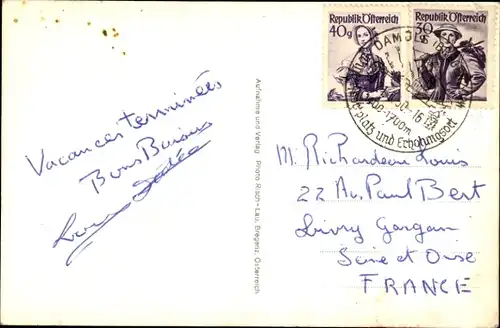 Vacances terminées
Bons Baisers
Aufnahme und Verlag: Photo Risch-Lau, Bregenz, Österreich
Republik Österreich
40g
Republik Österreich
30g
DAMÜLS
1700m
platz und Erholungsort
M. Richardeau Louis
22 Av. Paul Bert
Livry Gargan
Seine et Oise
FRANCE